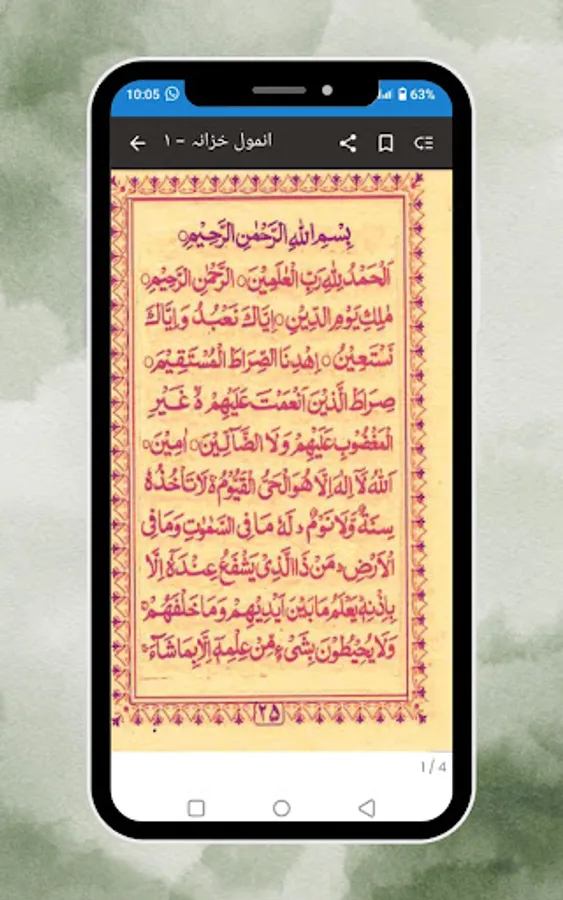 10:05 63%
انمول خزانہ - ۱
بِسْمِ اللّٰهِ الرَّحْمٰنِ الرَّحِيْمِ○
اَلْحَمْدُ لِلّٰهِ رَبِّ الْعٰلَمِيْنَ○ الرَّحْمٰنِ الرَّحِيْمِ○
مٰلِكِ يَوْمِ الدِّيْنِ○ اِيَّاكَ نَعْبُدُ وَاِيَّاكَ
نَسْتَعِيْنُ○ اِهْدِنَا الصِّرَاطَ الْمُسْتَقِيْمَ○
صِرَاطَ الَّذِيْنَ اَنْعَمْتَ عَلَيْهِمْ ۙ غَيْرِ
الْمَغْضُوْبِ عَلَيْهِمْ وَلَا الضَّآلِّيْنَ○ اٰمِيْنَ○
اَللّٰهُ لَآ اِلٰهَ اِلَّا هُوَ الْحَيُّ الْقَيُّوْمُ ۚ لَا تَاْخُذُهٗ
سِنَةٌ وَّلَا نَوْمٌ ؕ لَهٗ مَا فِي السَّمٰوٰتِ وَمَا فِي
الْاَرْضِ ؕ مَنْ ذَا الَّذِيْ يَشْفَعُ عِنْدَهٗٓ اِلَّا
بِاِذْنِهٖ ؕ يَعْلَمُ مَا بَيْنَ اَيْدِيْهِمْ وَمَا خَلْفَهُمْ ۚ
وَلَا يُحِيْطُوْنَ بِشَيْءٍ مِّنْ عِلْمِهٖٓ اِلَّا بِمَا شَآءَ ۚ
۲۵
1 / 4